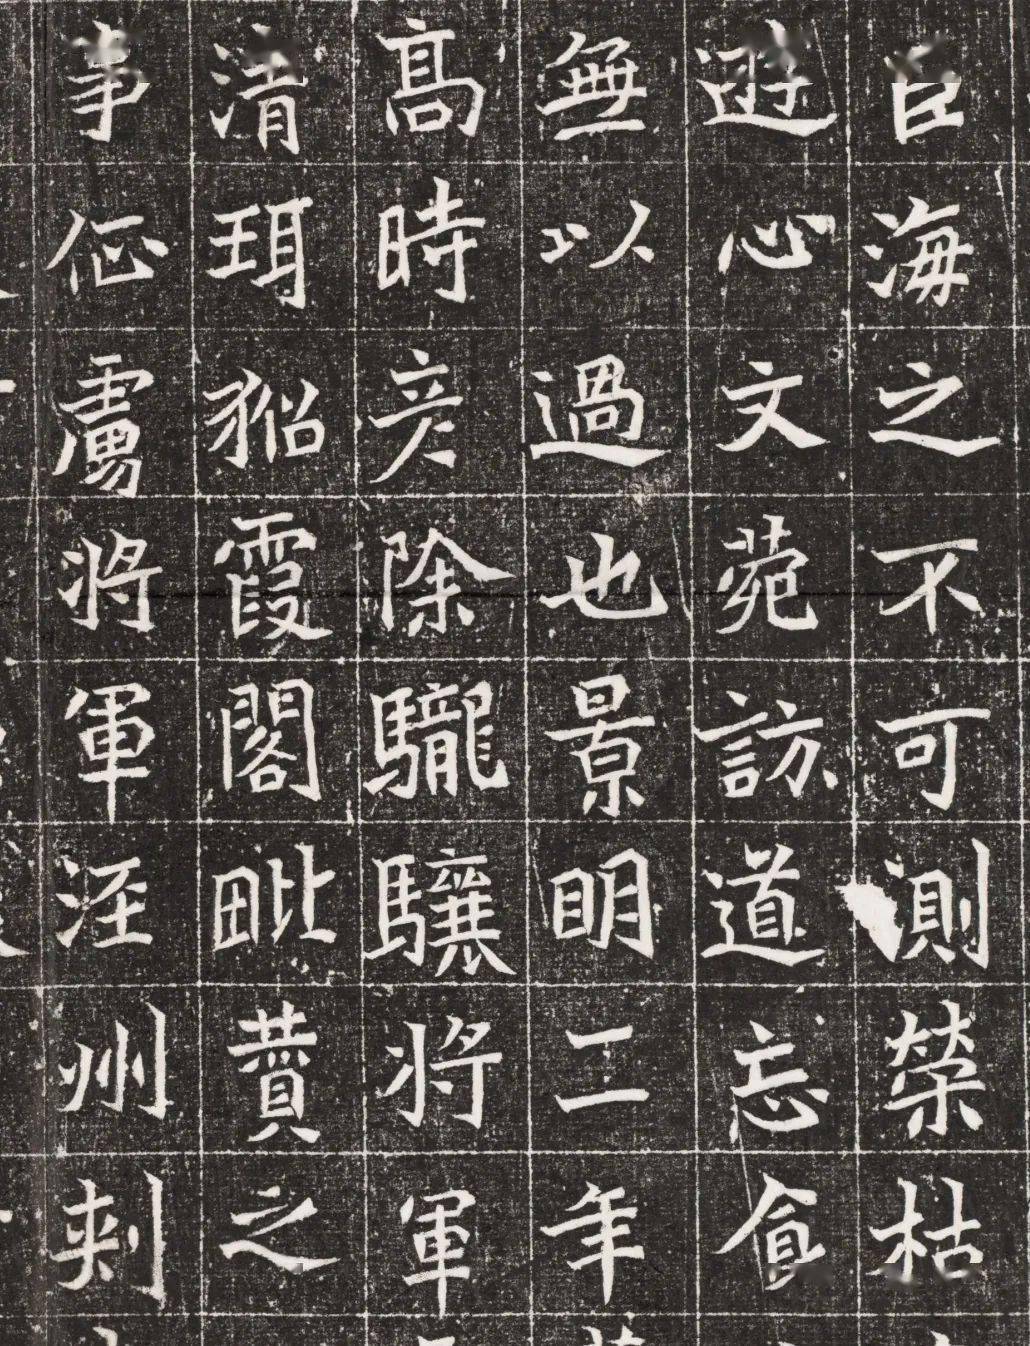 臣海之不可測榮枯
遊心文苑訪道忘食
無以過也景明二年
高時彥除驤驤將軍
清珥貂霞閣毗贊之
事征虜將軍涇州刺